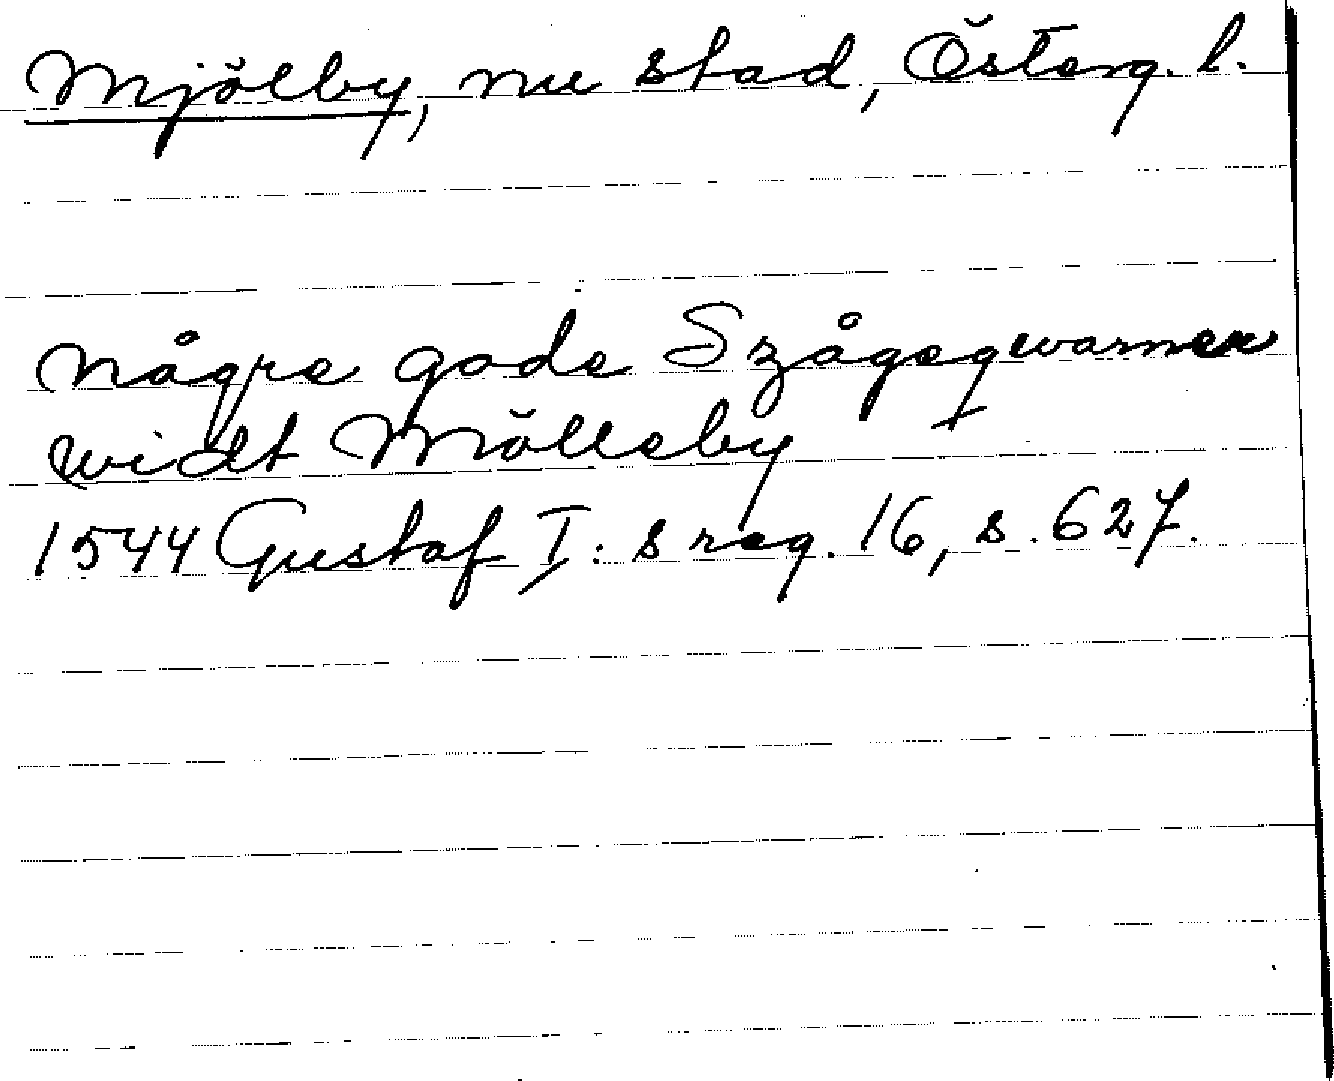 Mjölby, nu stad, Österg. l.
någre gode Szågeqwarner
widt Mölleby
1544 Gustaf I:s reg. 16, s. 627.